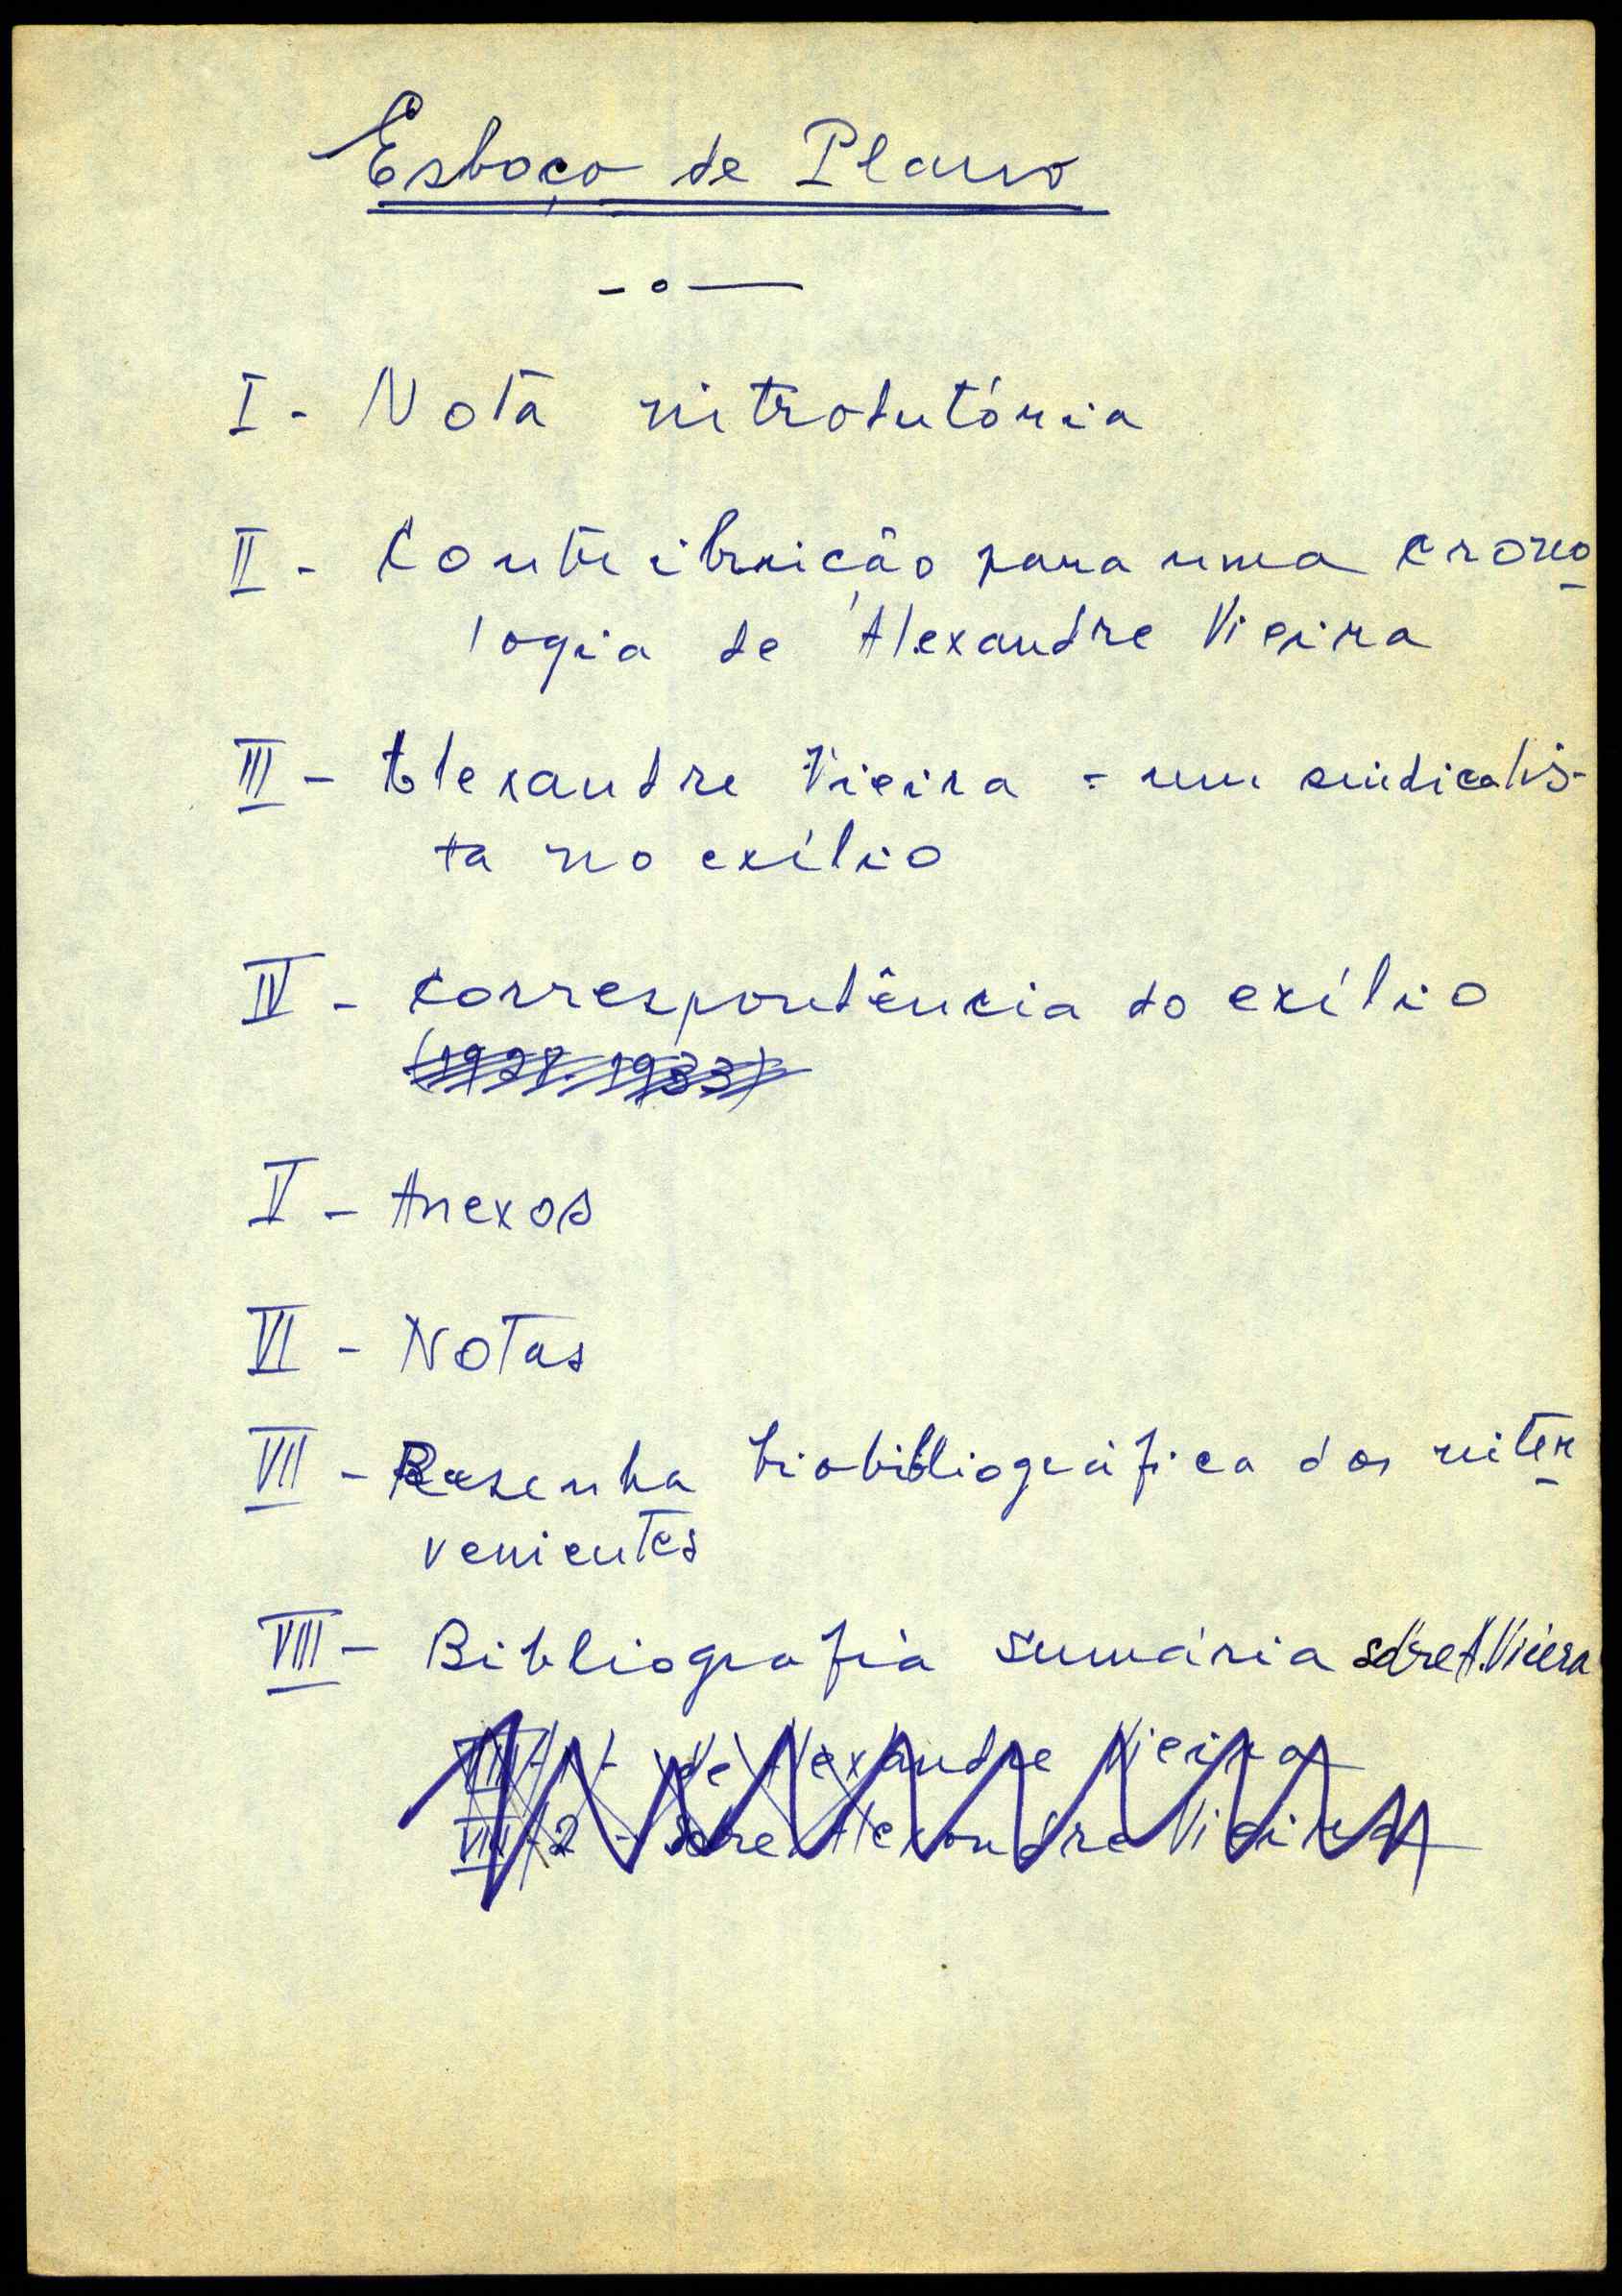 Esboço de Plano
I - Nota introdutória
II - Contribuição para uma crono
logia de Alexandre Vieira
III - Alexandre Vieira - um sindicalis-
ta no exílio
IV - Correspondência do exílio
(1927-1933)
V - Anexos
VI - Notas
VII - Resenha biobibliográfica dos inter
venientes
VIII - Bibliografia sumária sobre A. Vieira
VIII-1- de Alexandre Vieira
VIII-2 - sobre Alexandre Vieira